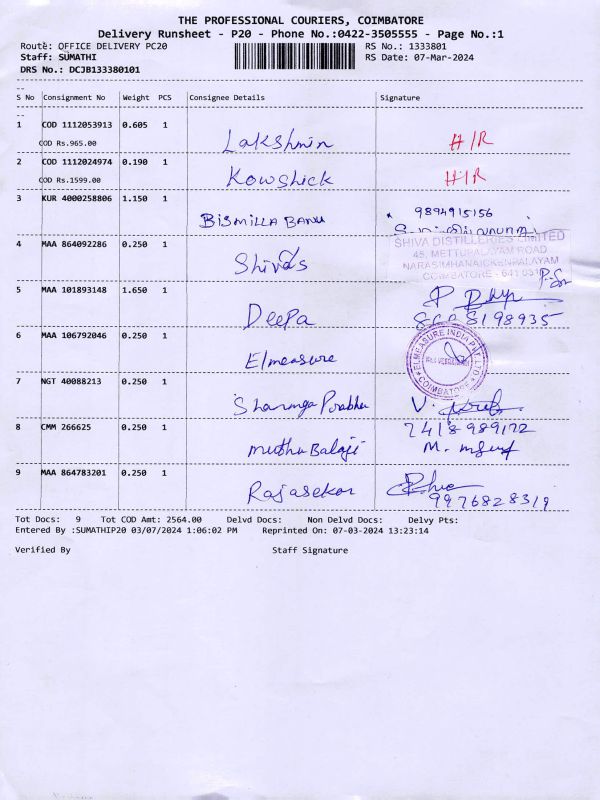 THE PROFESSIONAL COURIERS, COIMBATORE
Delivery Runsheet - P20 - Phone No.:0422-3505555 - Page No.:1
Route: OFFICE DELIVERY PC20
RS No.: 1333801
Staff: SUMATHI
RS Date: 07-Mar-2024
DRS No.: DCJB133380101
S No Consignment No Weight PCS Consignee Details Signature
1 COD 1112053913 0.605 1
COD Rs.965.00 Lakshmin H/R
2 COD 1112024974 0.190 1
COD Rs.1599.00 Kowshick H/R
3 KUR 4000258806 1.150 1
BISMILLA BANU 9894915156
4 MAA 864092286 0.250 1
Shivas
SHIVA DISTILLERIES LIMITED
45, METTUPALAYAM ROAD
NARASIMHANAICKENPALAYAM
COIMBATORE - 641 031
5 MAA 101893148 1.650 1
Deepa
6 MAA 106792046 0.250 1
Elmeasure
ELMEASURE INDIA PVT. LTD
COIMBATORE
7 NGT 40088213 0.250 1
Sharmga Prabhu
8 CMM 266625 0.250 1
muthu Balaji
7418989172
9 MAA 864783201 0.250 1
Rajasekar
9976828319
Tot Docs: 9 Tot COD Amt: 2564.00 Delvd Docs: Non Delvd Docs: Delvy Pts:
Entered By :SUMATHIP20 03/07/2024 1:06:02 PM Reprinted On: 07-03-2024 13:23:14
Verified By Staff Signature